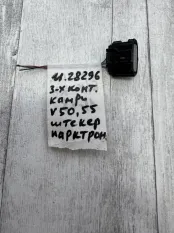 11.28296
3-х конт.
камри
V50,55
штекер
парктрон.